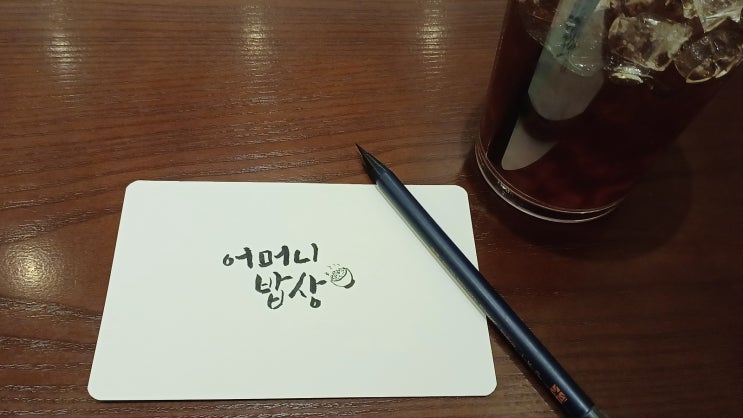 어머니
밥상